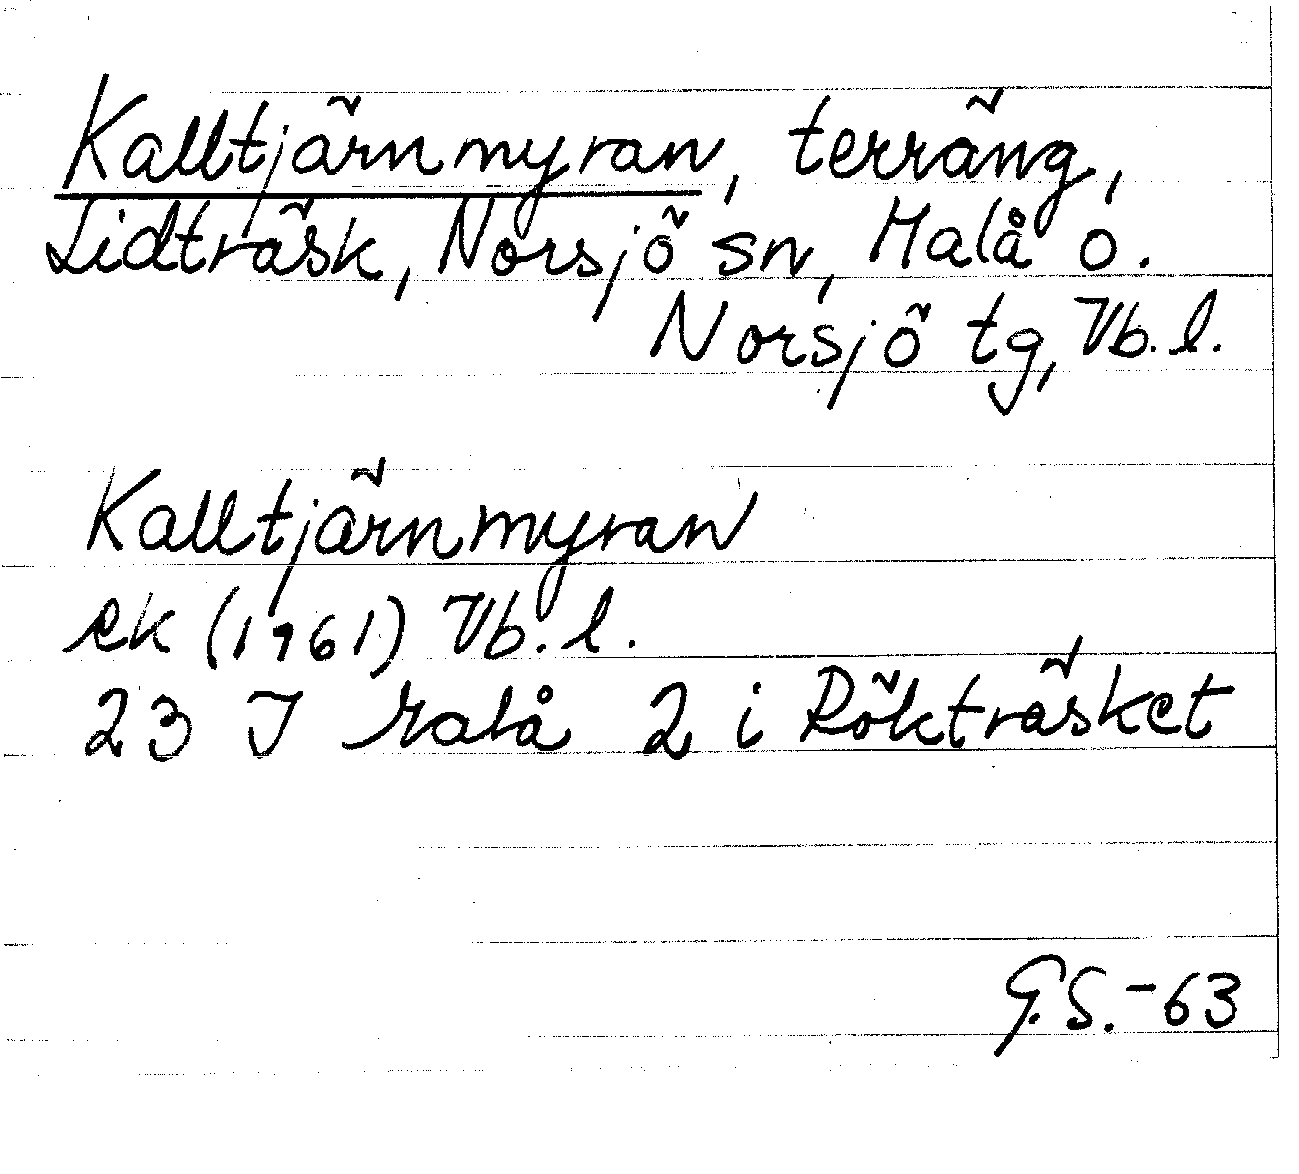 Kalltjärnmyran, terräng,
Lidträsk, Norsjö sn, Malå o.
Norsjö tg, Vb. l.
Kalltjärnmyran
ek (1961) Vb. l.
23 I Malå 2 i Rökträsket
G.S.-63